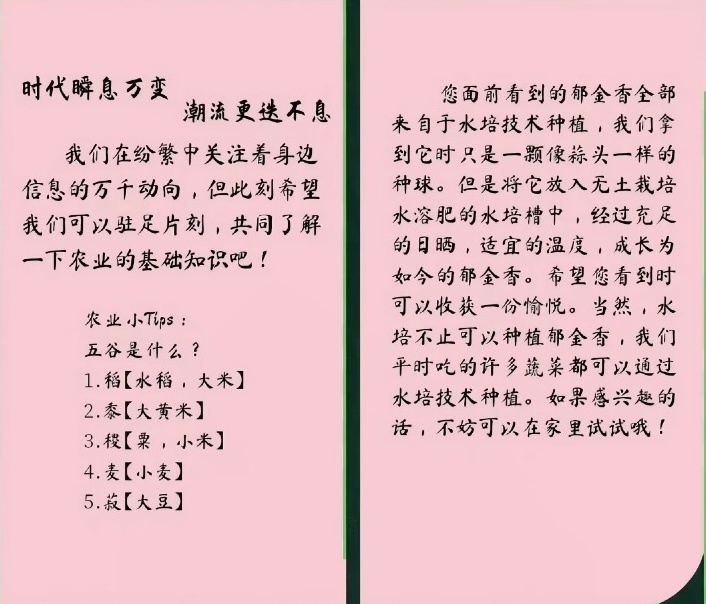 时代瞬息万变
潮流更迭不息
我们在纷繁中关注着身边
信息的万千动向，但此刻希望
我们可以驻足片刻，共同了解
一下农业的基础知识吧！
农业小Tips：
五谷是什么？
1.稻【水稻，大米】
2.黍【大黄米】
3.稷【粟，小米】
4.麦【小麦】
5.菽【大豆】
您面前看到的郁金香全部
来自于水培技术种植，我们拿
到它时只是一颗像蒜头一样的
种球。但是将它放入无土栽培
水溶肥的水培槽中，经过充足
的日晒，适宜的温度，成长为
如今的郁金香。希望您看到时
可以收获一份愉悦。当然，水
培不止可以种植郁金香，我们
平时吃的许多蔬菜都可以通过
水培技术种植。如果感兴趣的
话，不妨可以在家里试试哦！